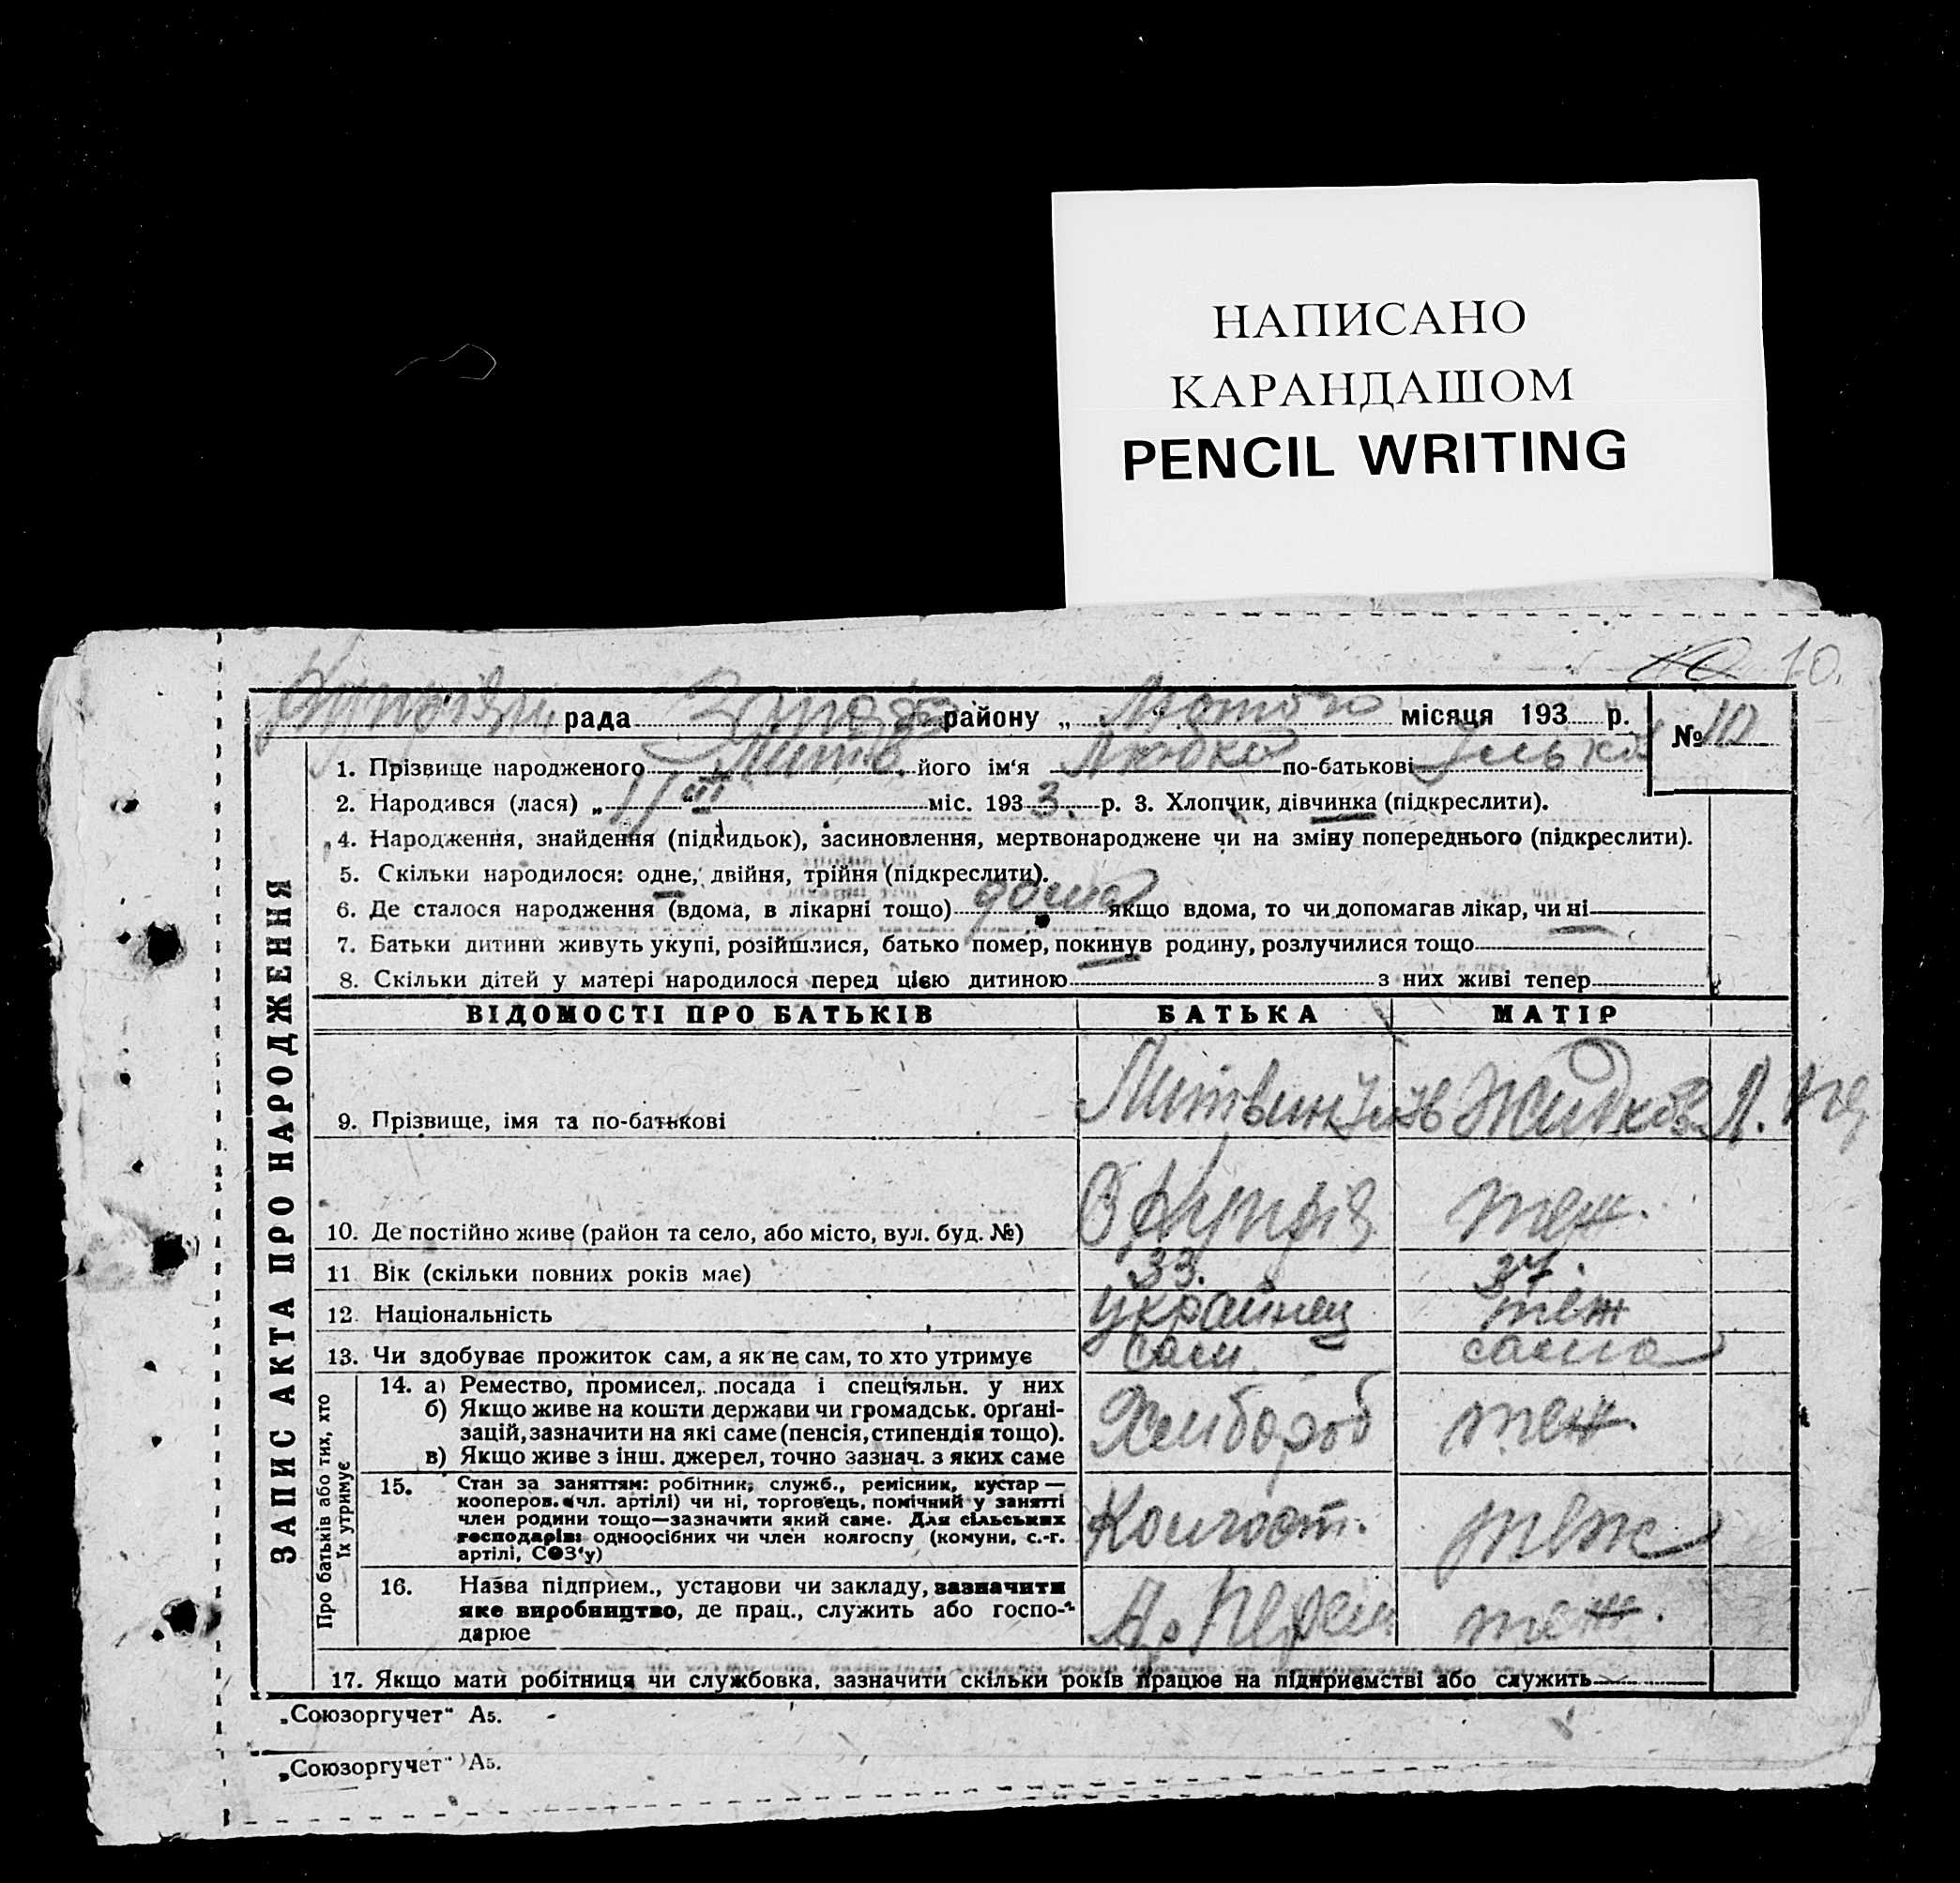 НАПИСАНО
КАРАНДАШОМ
PENCIL WRITING
10.
рада району „ Лютого місяця 193 р.
№ 10
1. Прізвище народженого Литв його ім'я Любка по-батькові Ільків
2. Народився (лася) „ 11 III міс. 193 3. р. 3. Хлопчик, дівчинка (підкреслити).
4. Народження, знайдення (підкидьок), засиновлення, мертвонароджене чи на зміну попереднього (підкреслити).
5. Скільки народилося: одне, двійня, трійня (підкреслити).
6. Де сталося народження (вдома, в лікарні тощо) дома якщо вдома, то чи допомагав лікар, чи ні
7. Батьки дитини живуть укупі, розійшлися, батько помер, покинув родину, розлучилися тощо
8. Скільки дітей у матері народилося перед цією дитиною з них живі тепер
ЗАПИС АКТА ПРО НАРОДЖЕННЯ
ВІДОМОСТІ ПРО БАТЬКІВ БАТЬКА МАТІР
9. Прізвище, імя та по-батькові Литвин
10. Де постійно живе (район та село, або місто, вул. буд. №) теж.
11 Вік (скільки повних років має) 33. 37.
12 Національність українец теж
13. Чи здобуває прожиток сам, а як не сам, то хто утримує сам сама
Про батьків або тих, хто їх утримує
14. а) Ремество, промисел, посада і спеціяльн. у них
б) Якщо живе на кошти держави чи громадськ. орґані-
зацій, зазначити на які саме (пенсія, стипендія тощо).
в) Якщо живе з інш. джерел, точно зазнач. з яких саме
Хлібороб теж.
15. Стан за заняттям: робітник, служб., ремісник, кустар —
кооперов. (чл. артілі) чи ні, торговець, помічний у занятті
член родини тощо—зазначити який саме. Для сільських
господарів: одноосібних чи член колгоспу (комуни, с.-г.
артілі, СОЗ'у)
Колгосп. теж
16. Назва підприєм., установи чи закладу, зазначити
яке виробництво, де прац., служить або госпо-
дарює
теж.
17. Якщо мати робітниця чи службовка, зазначити скільки років працює на підприємстві або служить
„Союзоргучет" А5.
„Союзоргучет" А5.